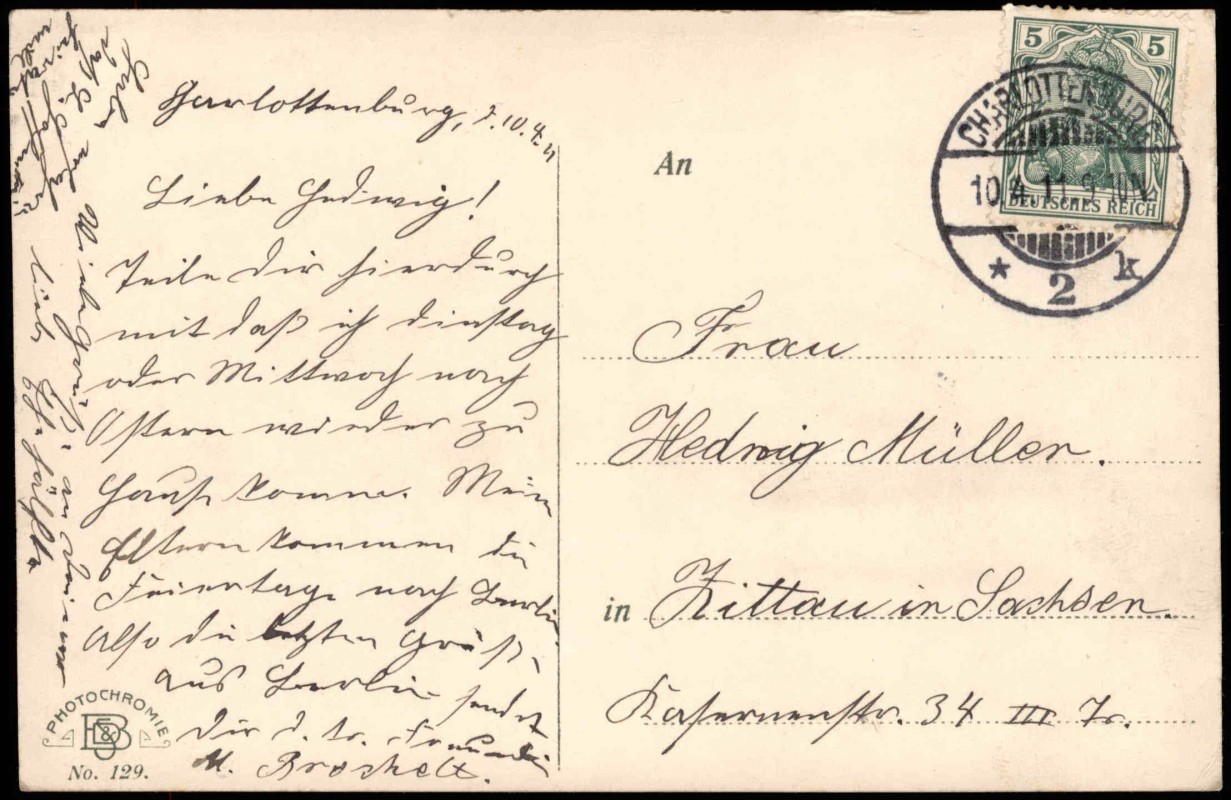 Charlottenburg, d. 10.4.11
Liebe Hedwig!
Teile dir hierdurch
mit daß ich dinstag
oder Mittwoch nach
Ostern wieder zu
Hause komme. Mein
Eltern kommen die
Feiertage nach Berlin
also die letzten Grüße
aus Berlin sendet
Dir d. tr. Freundin
M. Broschelt.
viele Grüße an
liebe
PHOTOCHROMIE
B&S
No. 129.
5 5
DEUTSCHES REICH
CHARLOTTENBURG
10.4.11.9-10N.
* 2 k
An
Frau
Hedwig Müller.
in Zittau in Sachsen.
Kasernenstr. 34 III Tr.